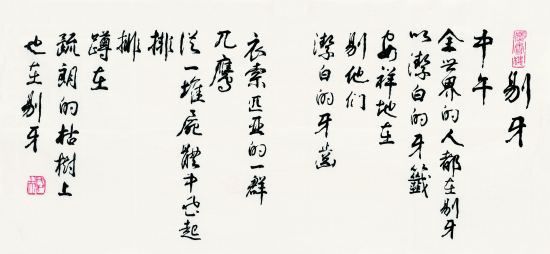 剔牙
中午
全世界的人都在剔牙
以潔白的牙籤
安祥地在
剔他们
潔白的牙齒
衣索匹亞的一群
兀鷹
從一堆屍體中飛起
排
排
蹲在
疏朗的枯樹上
也在剔牙